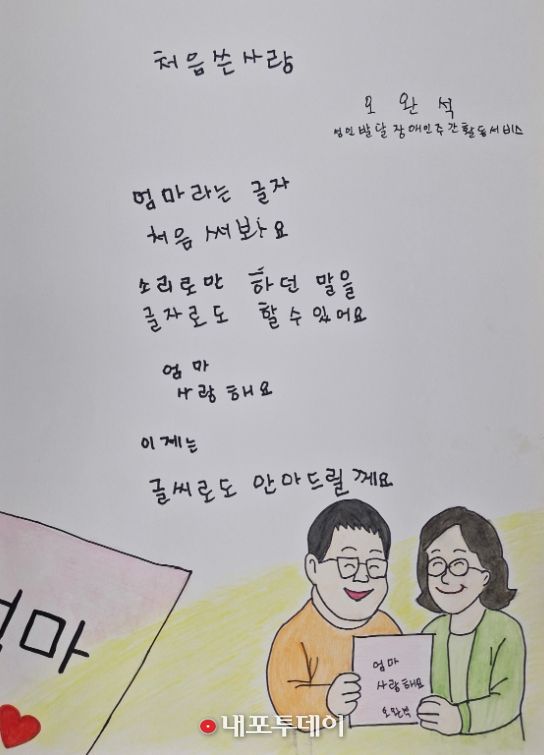 처음 쓴 사랑
오 완 석
성인발달장애인주간활동서비스
엄마라는 글자
처음 써봐요
소리로만 하던 말을
글자로도 할 수 있어요
엄마
사랑해요
이제는
글씨로도 안마드릴께요
엄마
엄마
사랑해요
오완석
내포투데이